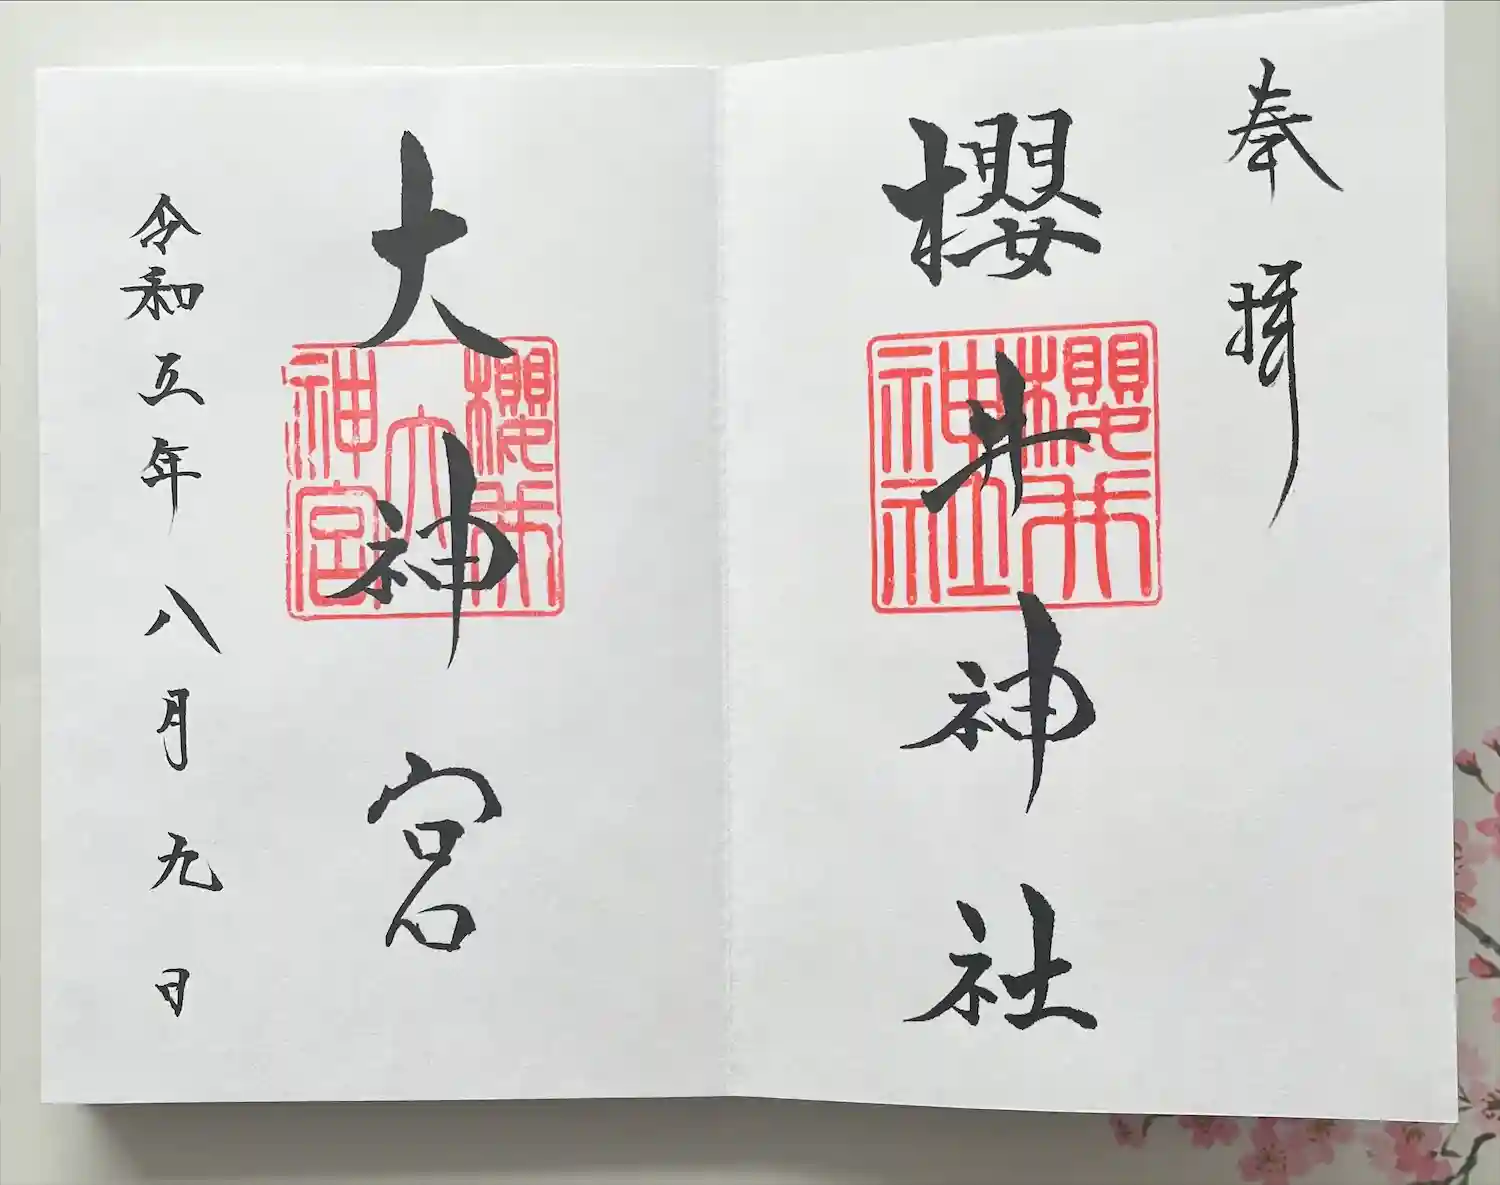 奉拝
櫻井神社
櫻井
神社
大神宮
櫻井
大
神宮
令和五年八月九日